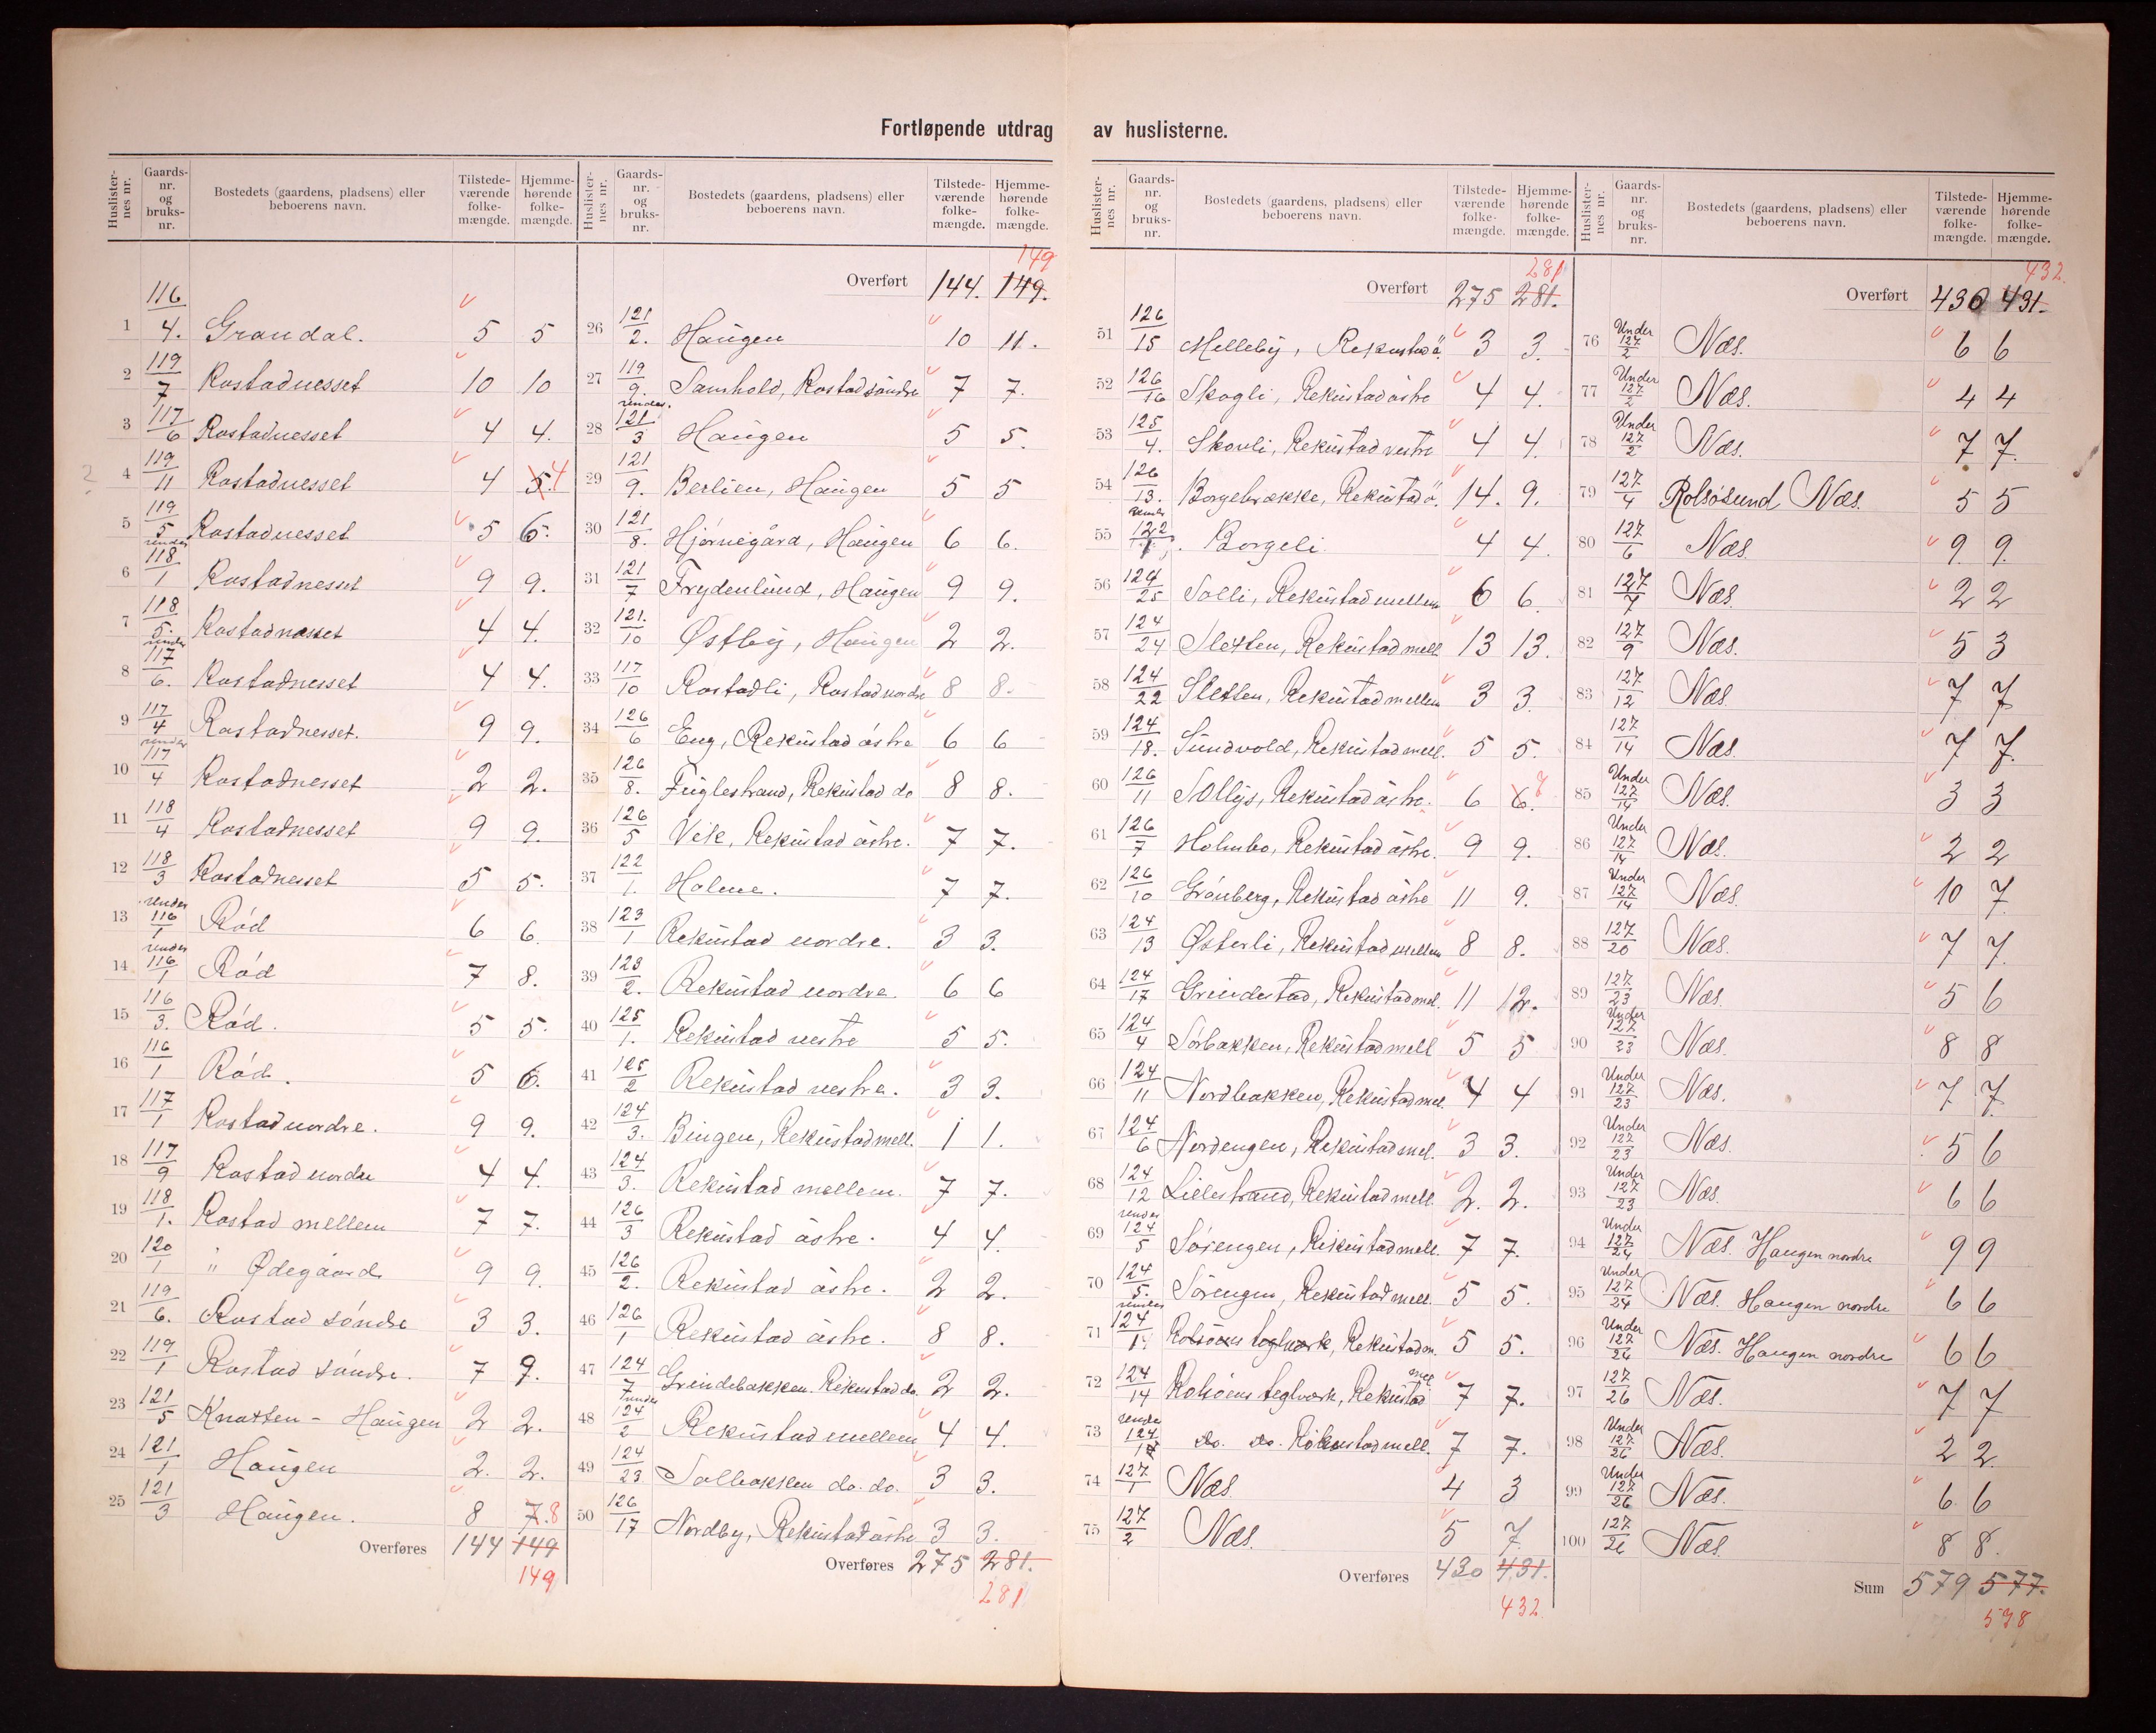 Fortløpende utdrag av huslisterne.
Huslisternes nr. | Gaards-nr. og bruks-nr. | Bostedets (gaardens, pladsens) eller beboerens navn. | Tilstedeværende folkemængde. | Hjemmehørende folkemængde.
1 116/4. Grandal. 5 5
2 119/7 Rostadnesset 10 10
3 117/6 Rostadnesset 4 4.
4 119/11 Rostadnesset 4 5 4
5 119/5 Rostadnesset 5 6.
6 under 118/1 Rostadnesset 9 9.
7 118/5. Rostadnesset 4 4.
8 under 117/6. Rostadnesset 4 4.
9 117/4 Rostadnesset. 9 9.
10 under 117/4 Rostadnesset 2 2.
11 118/4 Rostadnesset 9 9.
12 118/3 Rostadnesset 5 5.
13 under 116/1 Rød 6 6.
14 under 116/1 Rød 7 8.
15 116/3. Rød. 5 5.
16 116/1 Rød. 5 6.
17 117/1 Rostad nordre. 9 9.
18 117/9 Rostad nordre 4 4.
19 118/1. Rostad mellem 7 7.
20 120/1 " Ødegaard 9 9.
21 119/6. Rostad søndre 3 3.
22 119/1 Rostad søndre. 7 9.
23 121/5 Knatten - Haugen 2 2.
24 121/1 Haugen 2. 2.
25 121/3 Haugen. 8 7. 8
Overføres 144 149
149
Huslisternes nr. | Gaards-nr. og bruks-nr. | Bostedets (gaardens, pladsens) eller beboerens navn. | Tilstedeværende folkemængde. | Hjemmehørende folkemængde.
149
Overført 144. 149.
26 121/2. Haugen 10 11.
27 119/9. Samhold, Rostad søndre 7 7.
28 under 121/3 Haugen 5 5.
29 121/9. Berlien, Haugen 5 5
30 121/8. Hjørnegård, Haugen 6 6.
31 121/7 Frydenlund, Haugen 9 9.
32 121/10 Østby, Haugen 2 2.
33 117/10 Rostadli, Rostad nordre 8 8.
34 126/6 Eng, Rekustad østre 6 6
35 126/8. Fuglestrand, Rekustad do 8 8.
36 126/5 Vik, Rekustad østre. 7 7.
37 122/1. Holme. 7 7.
38 123/1 Rekustad nordre. 3 3.
39 123/2. Rekustad nordre. 6 6
40 125/1. Rekustad vestre 5 5.
41 125/2 Rekustad vestre. 3 3.
42 124/3. Bingen, Rekustad mell. 1 1.
43 124/3. Rekustad mellem. 7 7.
44 126/3 Rekustad østre. 4 4.
45 126/2. Rekustad østre. 2 2.
46 126/1 Rekustad østre. 8 8.
47 124/7 Grindebakken. Rekustad do. 2 2.
48 under 124/2 Rekustad mellem 4 4.
49 124/23 Solbakken do. do. 3 3.
50 126/17 Nordby, Rekustad østre 3 3.
Overføres 275 281.
281
Huslisternes nr. | Gaards-nr. og bruks-nr. | Bostedets (gaardens, pladsens) eller beboerens navn. | Tilstedeværende folkemængde. | Hjemmehørende folkemængde.
281
Overført 275 281.
51 126/15 Melleby, Rekustad ø. 3 3.
52 126/16 Skogli, Rekustad østre 4 4.
53 125/4. Skovli, Rekustad vestre 4 4.
54 126/13. Borgebrække, Rekustad ø. 14. 9.
55 under 122/1. Borgeli. 4 4.
56 124/25 Solli, Rekustad mellem 6 6.
57 124/24 Sletten, Rekustad mell. 13 13.
58 124/22 Sletten, Rekustad mellem 3 3.
59 124/18. Sundvold, Rekustad mell. 5 5.
60 126/11 Sollys, Rekustad østre. 6 6. 7
61 126/7 Holmbo, Rekustad østre. 9 9.
62 126/10 Grønberg, Rekustad østre 11 9.
63 124/13 Østerli, Rekustad mellem 8 8.
64 124/17 Grindestad, Rekustad mel. 11 12.
65 124/4 Sørbakken, Rekustad mell 5 5
66 124/11 Nordbakken, Rekustad mel. 4 4
67 124/6 Nordengen, Rekustad mel. 3 3.
68 124/12 Lillestrand, Rekustad mell. 2. 2.
69 under 124/5 Sørengen, Rekustad mell. 7 7.
70 124/5. Sørengen, Rekustad mell. 5 5.
71 under 124/14 Rolsøens teglværk, Rekustad m. 5 5.
72 124/14 Rolsøens teglværk, Rekustad mel 7 7.
73 under 124/14 do. do. Rekustad mell. 7 7.
74 127/1 Næs. 4 3
75 127/2 Næs. 5 7.
Overføres 430 431.
432.
Huslisternes nr. | Gaards-nr. og bruks-nr. | Bostedets (gaardens, pladsens) eller beboerens navn. | Tilstedeværende folkemængde. | Hjemmehørende folkemængde.
432.
Overført 430 431.
76 Under 127/2 Næs. 6 6
77 Under 127/2 Næs. 4 4
78 Under 127/2 Næs. 7 7.
79 127/4 Rolsøsund Næs. 5 5
80 127/6 Næs. 9 9.
81 127/7 Næs. 2 2
82 127/9 Næs. 5 3
83 127/12 Næs. 7 7
84 127/14 Næs. 7 7.
85 Under 127/14 Næs. 3 3
86 Under 127/14 Næs. 2 2
87 Under 127/14 Næs. 10 7
88 127/20 Næs. 7 7.
89 127/23 Næs. 5 6
90 Under 127/23 Næs. 8 8
91 Under 127/23 Næs. 7 7.
92 Under 127/23 Næs. 5 6
93 Under 127/23 Næs. 6 6
94 Under 127/24 Næs. Haugen nordre 9 9
95 Under 127/24 Næs. Haugen nordre 6 6
96 Under 127/24 Næs. Haugen nordre 6 6
97 127/26 Næs. 7 7
98 Under 127/26 Næs. 2 2.
99 Under 127/26 Næs. 6 6
100 127/26 Næs. 8 8.
Sum 579 577.
578